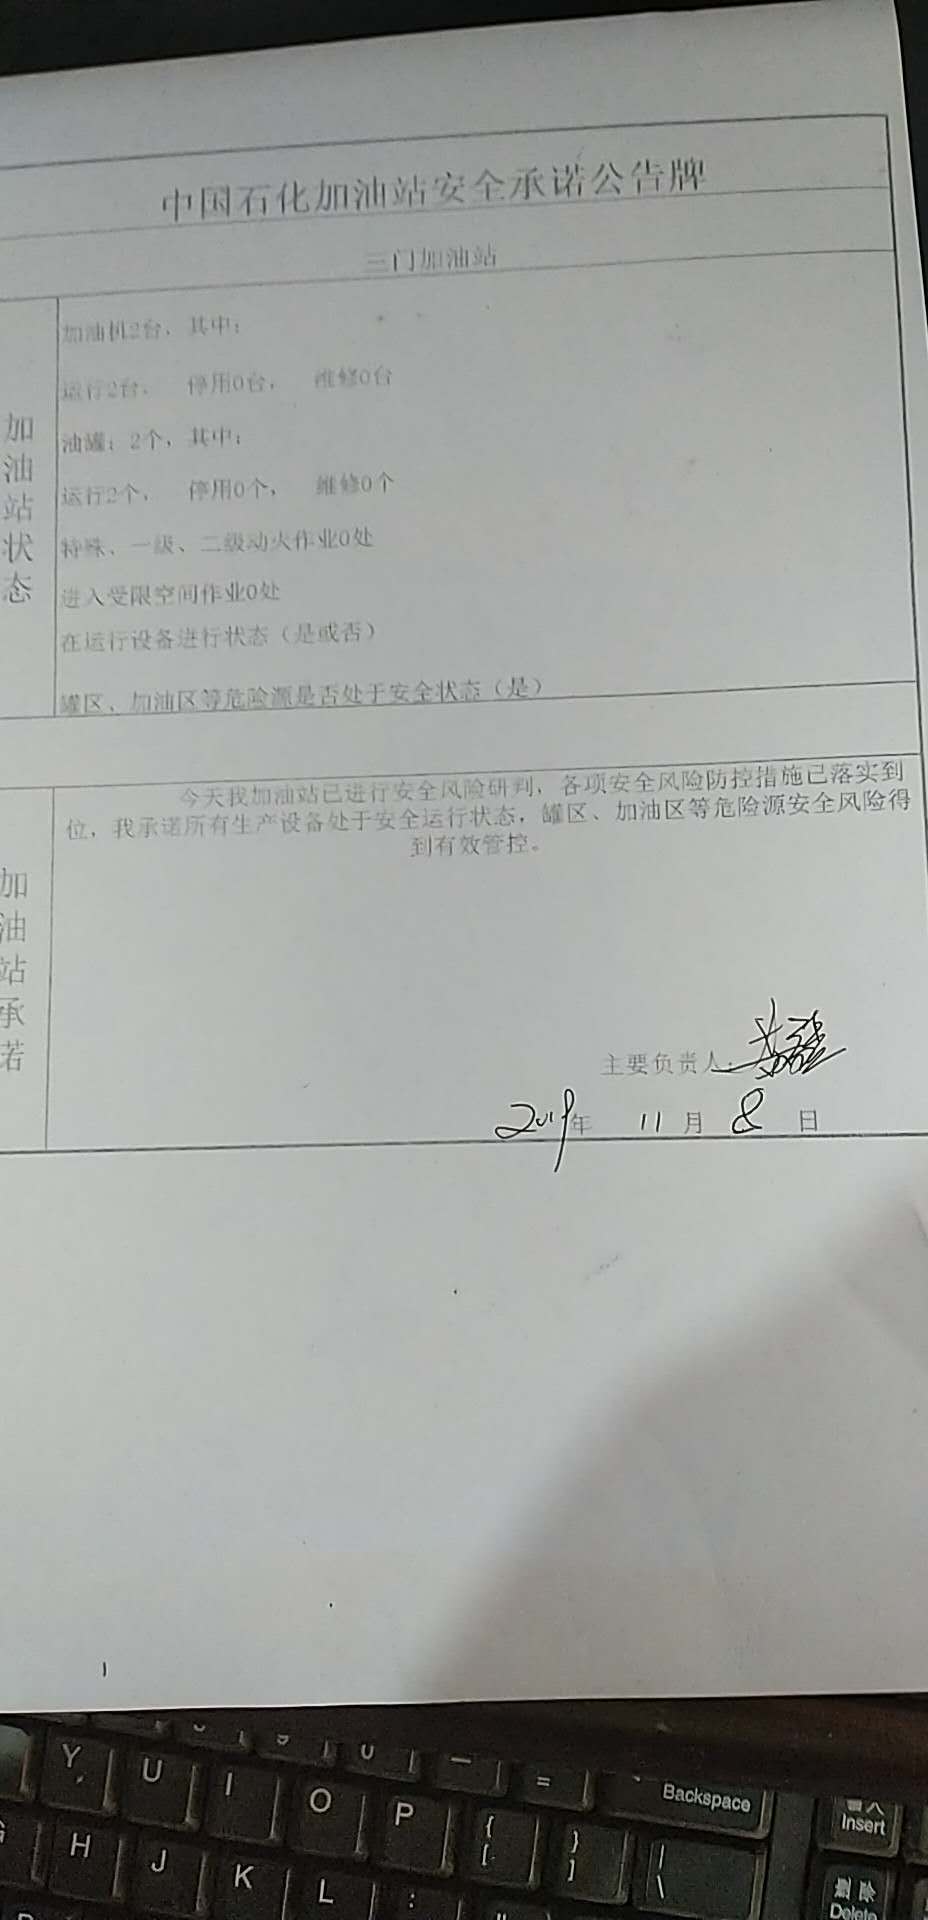 中国石化加油站安全承诺公告牌
三门加油站
加油站状态
加油机2台，其中：
运行2台， 停用0台， 维修0台
油罐：2个，其中：
运行2个， 停用0个， 维修0个
特殊、一级、二级动火作业0处
进入受限空间作业0处
在运行设备进行状态（是或否）
罐区、加油区等危险源是否处于安全状态（是）
加油站承若
今天我加油站已进行安全风险研判，各项安全风险防控措施已落实到
位，我承诺所有生产设备处于安全运行状态，罐区、加油区等危险源安全风险得
到有效管控。
主要负责人：
2019年 11月 8日
Y U I O P { [ } ] | \
= Backspace
Insert
H J K L :
Delete